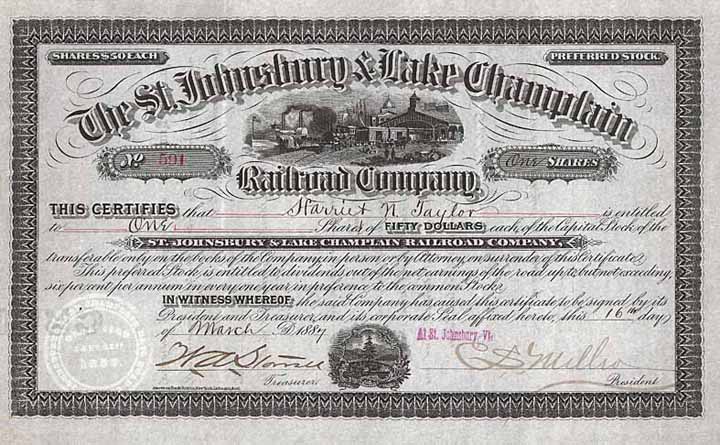 SHARES $50 EACH
PREFERRED STOCK.
The St. Johnsbury & Lake Champlain
Railroad Company.
No 591
One SHARES
THIS CERTIFIES that Harriet N. Taylor is entitled
to One Shares of FIFTY DOLLARS each, of the Capital Stock of the
ST. JOHNSBURY & LAKE CHAMPLAIN RAILROAD COMPANY,
transferable only on the books of the Company, in person or by Attorney on surrender of this Certificate.
This preferred Stock is entitled to dividends out of the net earnings of the road up to but not exceeding,
six per cent per annum in every one year in preference to the common Stock.
IN WITNESS WHEREOF, the said Company has caused this certificate to be signed by its
President and Treasurer, and its corporate Seal affixed hereto, this 16th day
of March D. 1887
At St. Johnsbury, Vt.
Treasurer.
President